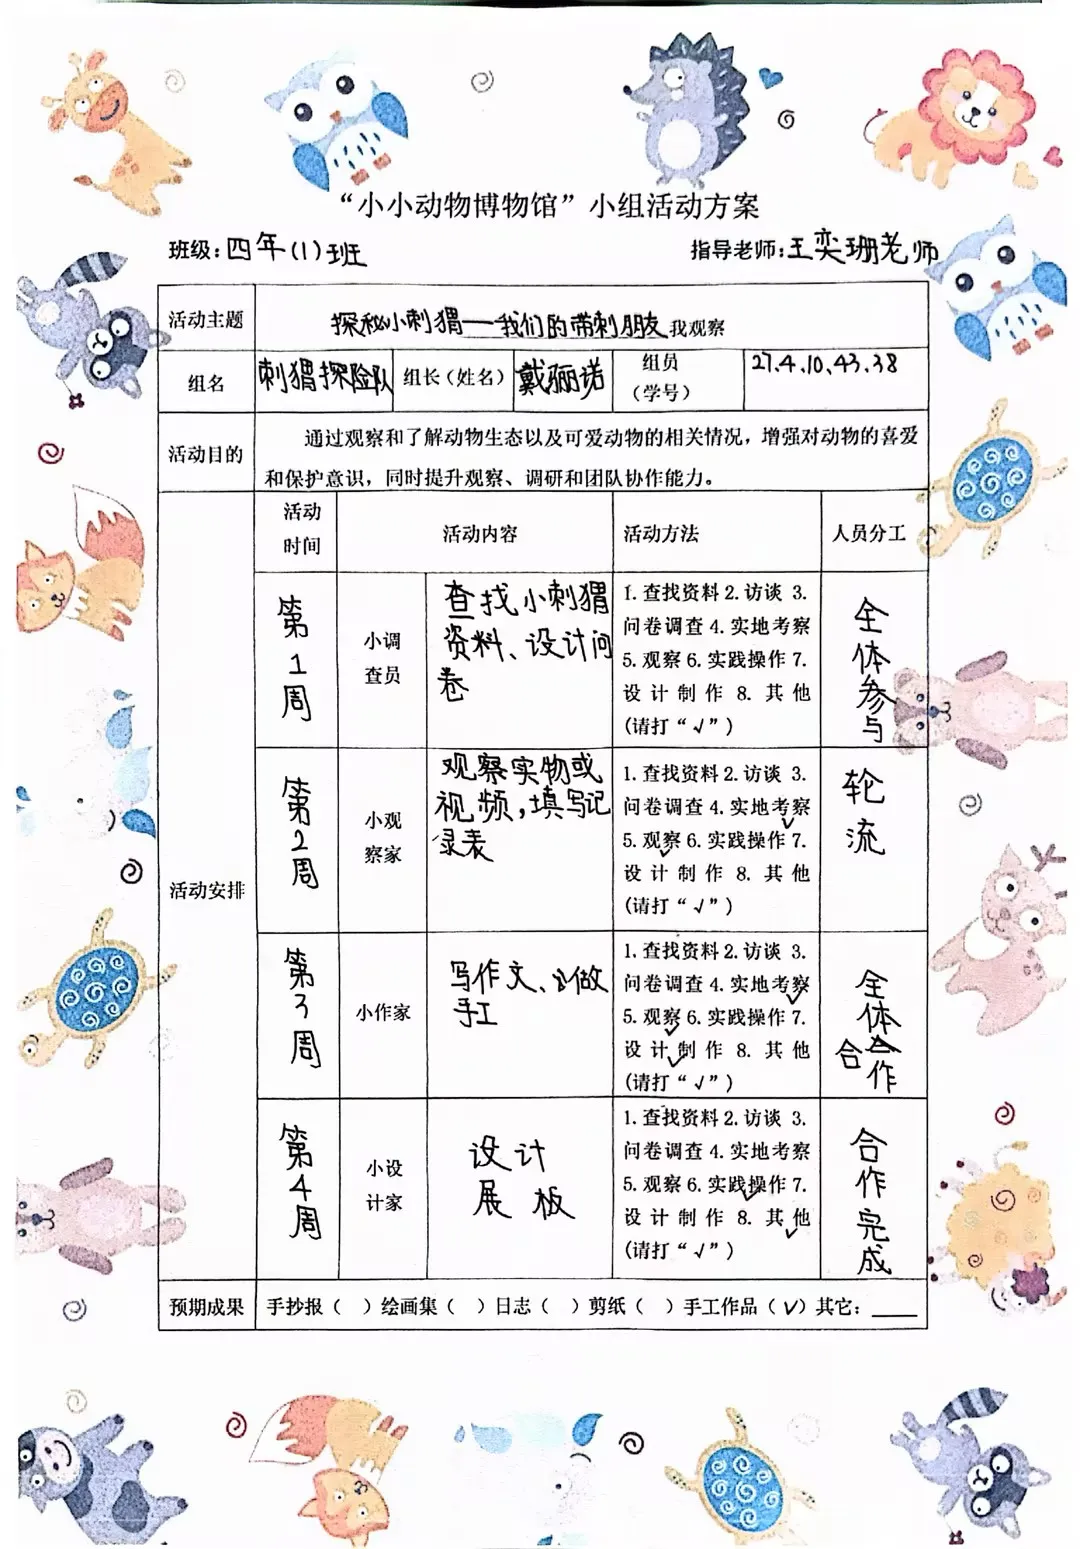 “小小动物博物馆”小组活动方案
班级:四年(1)班 指导老师:王奕珊老师
活动主题 探秘小刺猬——我们的带刺朋友我观察
组名 刺猬探险队 组长(姓名) 戴骊诺 组员(学号) 27.4.10.43.38
活动目的 通过观察和了解动物生态以及可爱动物的相关情况，增强对动物的喜爱
和保护意识，同时提升观察、调研和团队协作能力。
活动安排
活动时间 活动内容 活动方法 人员分工
第1周
小调
查员
查找小刺猬
资料、设计问
卷
1.查找资料2.访谈 3.
问卷调查4.实地考察
5.观察6.实践操作7.
设计制作 8.其他
(请打“√”)
全体参与
第2周
小观
察家
观察实物或
视频,填写记
录表
1.查找资料2.访谈 3.
问卷调查4.实地考察
√
5.观察6.实践操作7.
√
设计制作 8.其他
(请打“√”)
轮流
第3周
小作家
写作文、做
手工
1.查找资料2.访谈 3.
问卷调查4.实地考察
√
5.观察6.实践操作7.
√
设计制作 8.其他
√
(请打“√”)
全体
合作
第4周
小设
计家
设计
展板
1.查找资料2.访谈 3.
问卷调查4.实地考察
5.观察6.实践操作7.
√
设计制作 8.其他
√
(请打“√”)
合作完成
预期成果 手抄报（ ）绘画集（ ）日志（ ）剪纸（ ）手工作品（√）其它：____